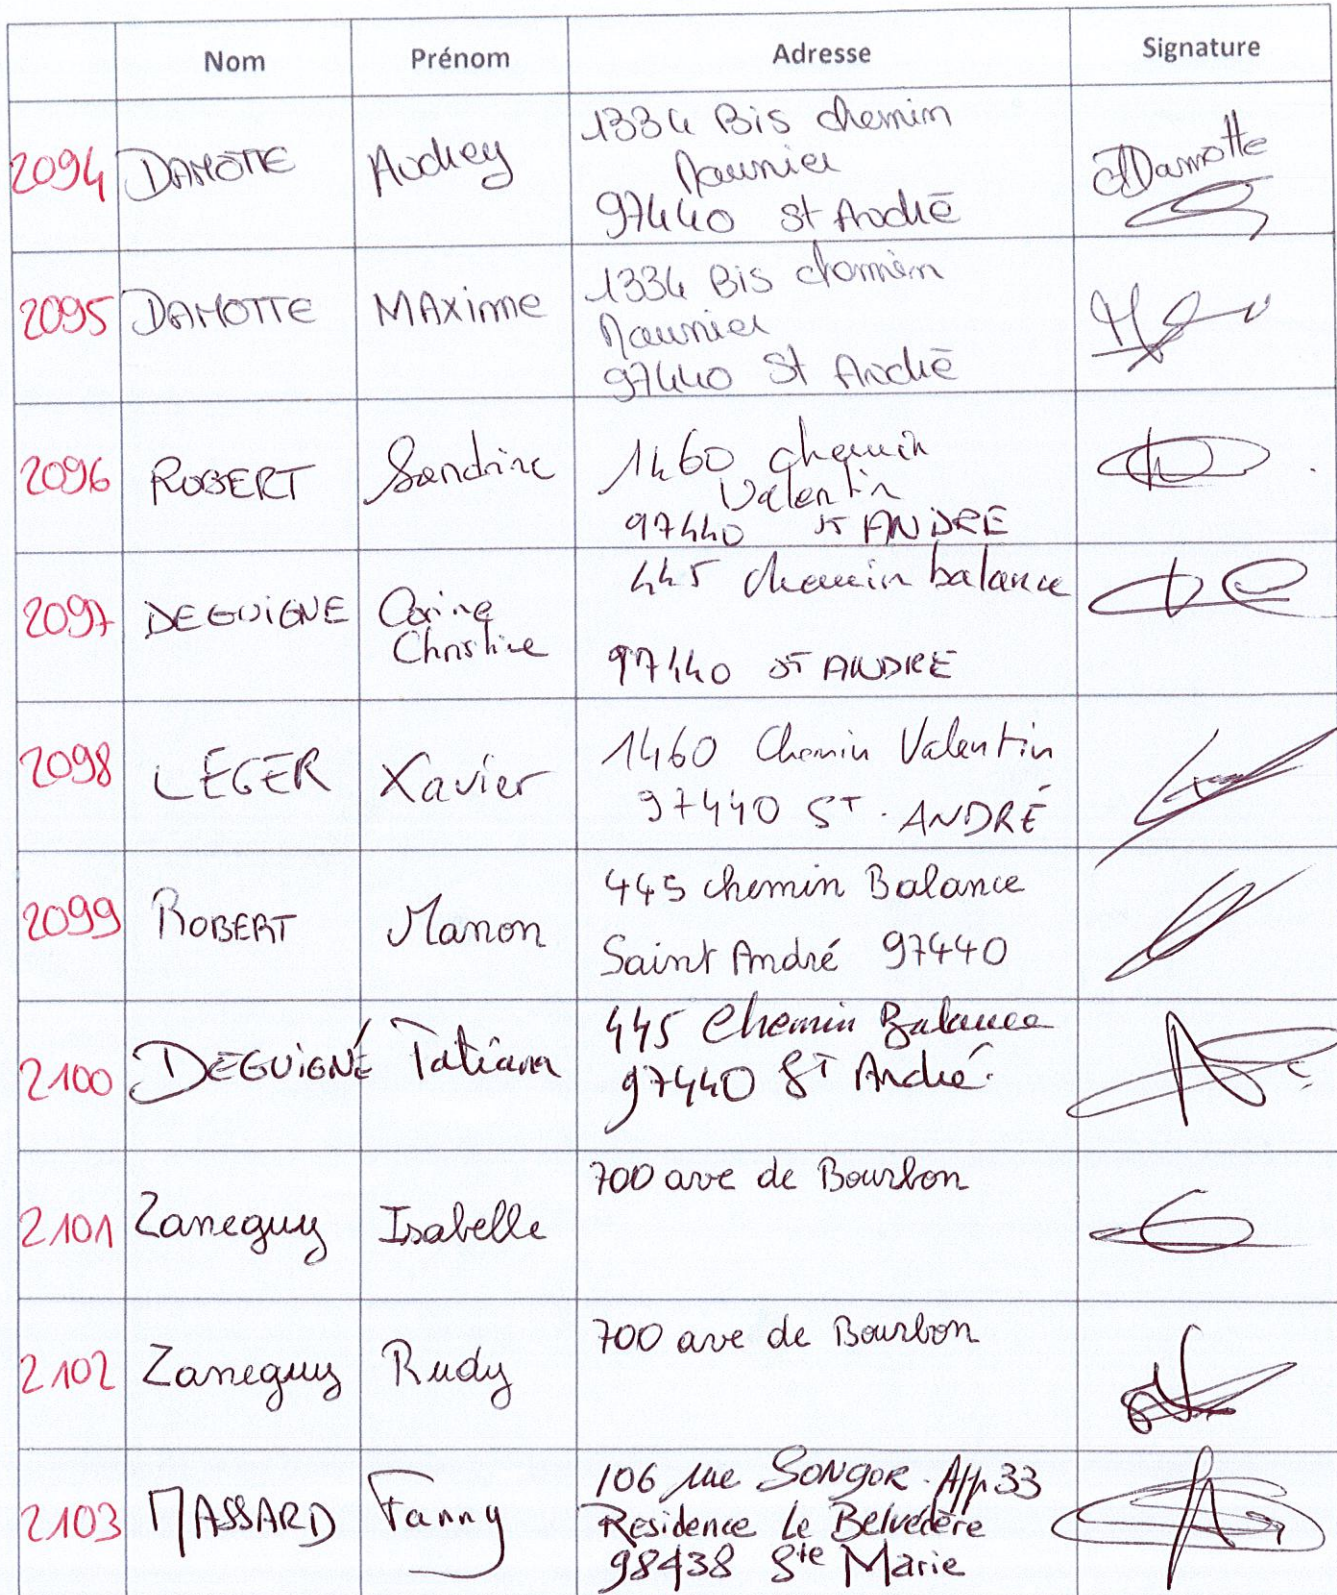 Nom Prénom Adresse Signature
2094 DAMOTTE Audrey 1334 Bis chemin
Maunier
97440 St André
ADamotte
2095 DAMOTTE MAxime 1334 Bis chemin
Maunier
97440 St André
2096 ROBERT Sandrine 1460 chemin
Valentin
97440 ST ANDRE
2097 DEGUIGNE Corine
Christine
445 chemin balance
97440 ST ANDRE
2098 LEGER Xavier 1460 Chemin Valentin
97440 ST. ANDRÉ
2099 ROBERT Manon 445 chemin Balance
Saint André 97440
2100 DEGUIGNÉ Tatiana 445 Chemin Balance
97440 ST André.
2101 Zaneguy Isabelle 700 ave de Bourbon
2102 Zaneguy Rudy 700 ave de Bourbon
2103 MASSARD Fanny 106 rue SONGOR. App 33
Residence Le Belvedère
98438 Ste Marie